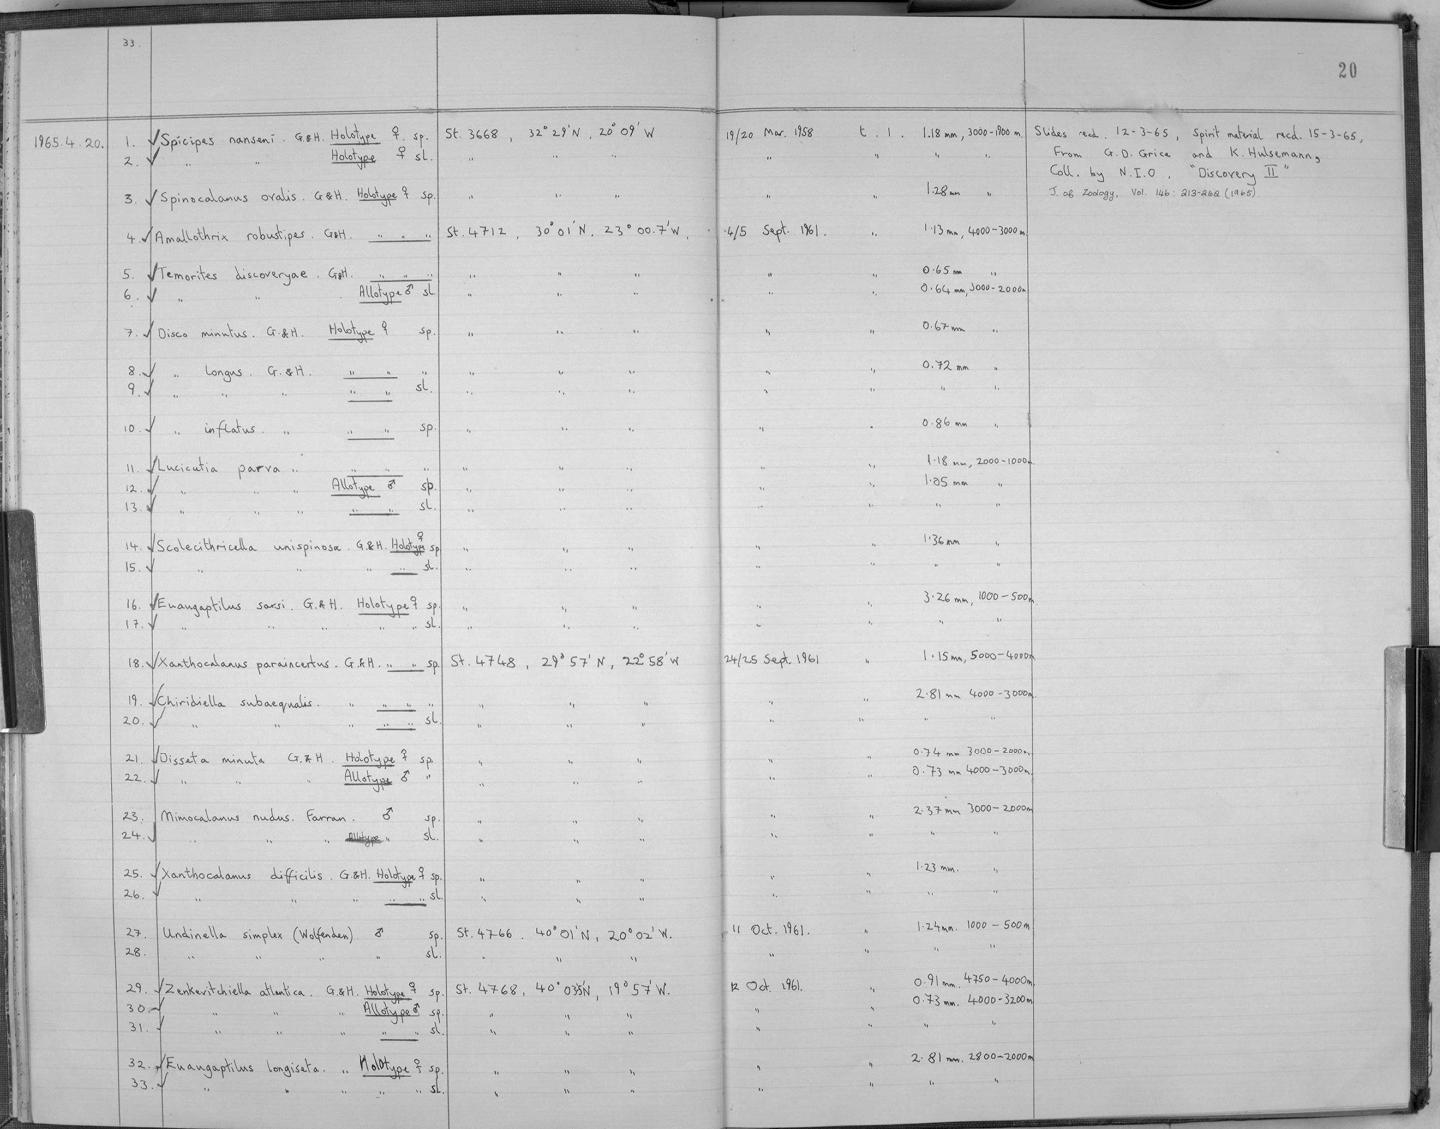 33.
20
1965.4.20. 1. Spicipes nanseni. G.&H. Holotype ♀ sp. St. 3668, 32° 29' N, 20° 09' W 19/20 Mar. 1958 t. 1. 1.18 mm, 3000-1900 m. Slides recd. 12-3-65, Spirit material recd. 15-3-65,
2. " " Holotype ♀ sl. " " " " " " " From G.D. Grice and K. Hulsemann,
Coll. by N.I.O. "Discovery II"
3. Spinocalanus ovalis. G&H. Holotype ♀ sp. " " " " " 1.28 mm " J. of Zoology, Vol. 146: 213-262 (1965).
4. Amallothrix robustipes. G&H. " " " St. 4712, 30° 01' N, 23° 00.7' W, 4/5 Sept. 1961. " 1.13 mm, 4000-3000 m.
5. Temorites discoveryae. G&H. " " " " " " " " 0.65 mm "
6. " " Allotype ♂ sl " " " " " 0.64 mm, 3000-2000 m
7. Disco minutus. G.&H. Holotype ♀ sp. " " " " " 0.67 mm "
8. " longus. G.&H. " " " " " " " " 0.72 mm "
9. " " " " " sl. " " " " " " "
10. " inflatus. " " " sp. " " " " " 0.86 mm "
11. Lucicutia parva " " " " " " " " " 1.18 mm, 2000-1000 m
12. " " " Allotype ♂ sp. " " " " " 1.05 mm "
13. " " " " " sl. " " " " " " "
14. Scolecithricella unispinosa. G.&H. Holotype ♀ sp " " " " " 1.36 mm "
15. " " " " sl. " " " " " " "
16. Euaugaptilus sarsi. G.&H. Holotype ♀ sp. " " " " " 3.26 mm, 1000-500 m
17. " " " " " sl. " " " " " " "
18. Xanthocalanus paraincertus. G.&H. " " sp. St. 4748, 29° 57' N, 22° 58' W 24/25 Sept. 1961 " 1.15 mm, 5000-4000 m
19. Chiridiella subaequalis. " " " " " " " " " 2.81 mm 4000-3000 m.
20. " " " " " sl. " " " " " " "
21. Disseta minuta G.&H. Holotype ♀ sp. " " " " " 0.74 mm 3000-2000 m.
22. " " " Allotype ♂ " " " " " " 0.73 mm 4000-3000 m.
23. Mimocalanus nudus. Farran. ♂ sp. " " " " " 2.37 mm. 3000-2000 m
24. " " " Allotype " sl. " " " " " " "
25. Xanthocalanus difficilis. G.&H. Holotype ♀ sp. " " " " " 1.23 mm. "
26. " " " " " sl. " " " " " " "
27. Undinella simplex (Wolfenden) ♂ sp. St. 4766. 40° 01' N, 20° 02' W. 11 Oct. 1961. " 1.24 mm. 1000-500 m
28. " " " " sl. " " " " " " "
29. Zenkevitchiella atlantica. G.&H. Holotype ♀ sp. St. 4768, 40° N, 19° 57' W. 12 Oct. 1961. " 0.91 mm. 4750-4000 m.
30. " " " Allotype ♂ sp. " " " " " 0.73 mm. 4000-3200 m.
31. " " " " " sl. " " " " " " "
32. Euaugaptilus longiseta. " Holotype ♀ sp. " " " " " 2.81 mm. 2800-2000 m
33. " " " " " sl. " " " " " " "